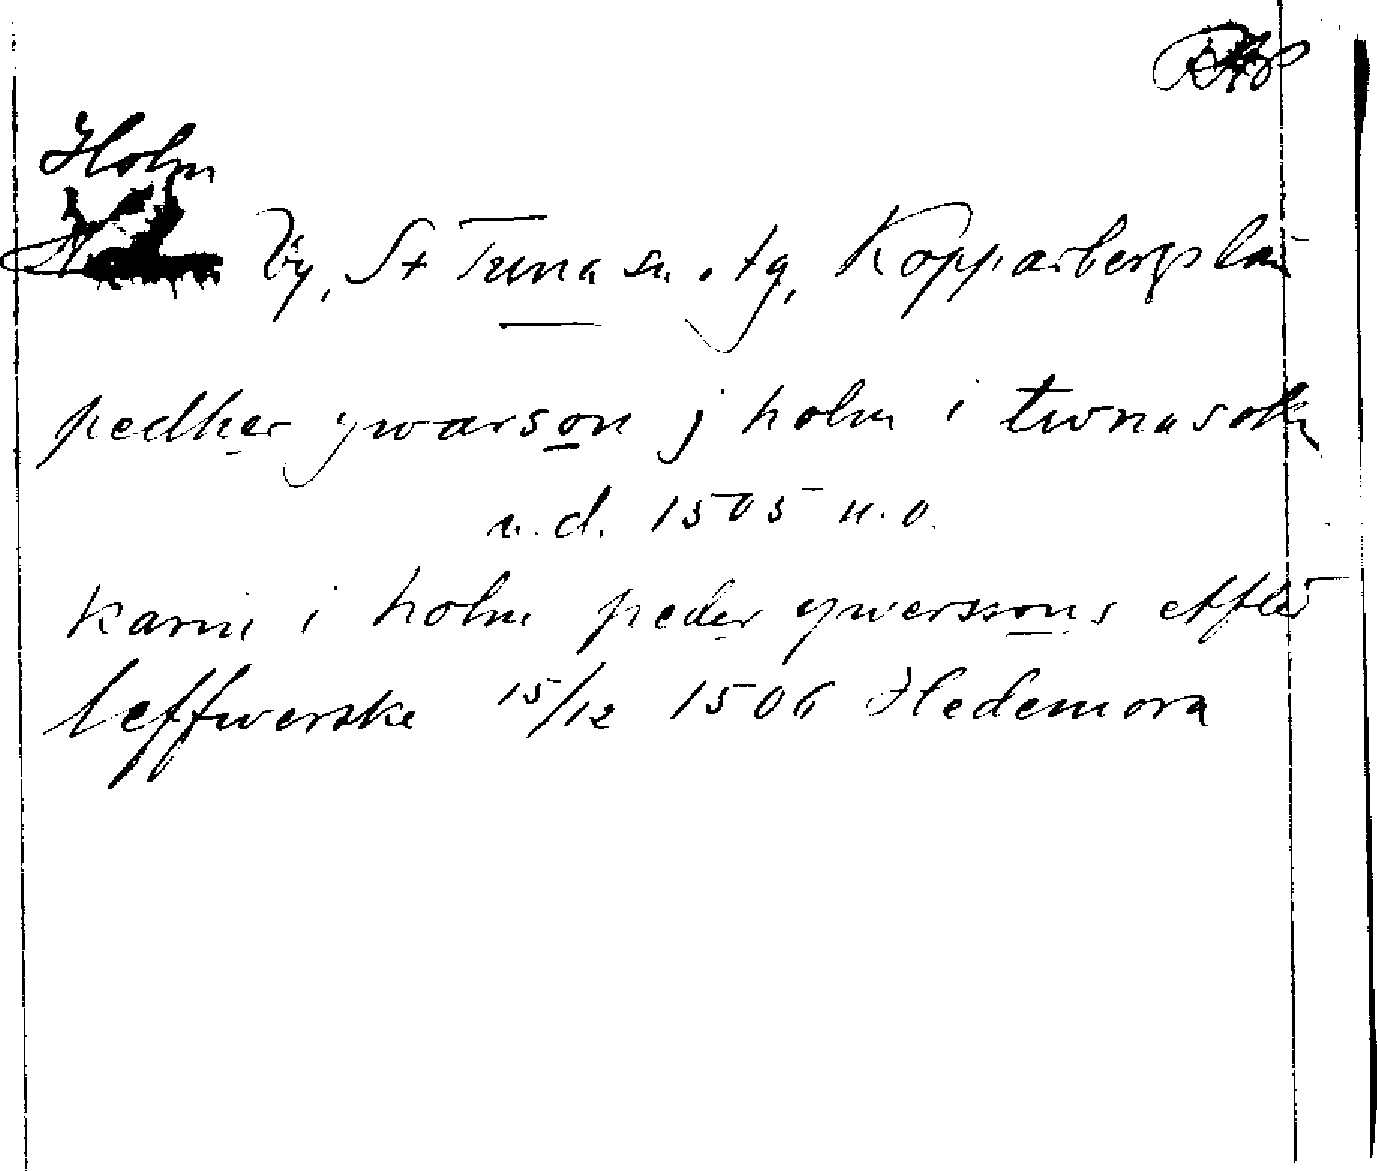 Holm
by, St Tuna sn. o. tg, Kopparbergs län
pedher ywarson j holm i twna sokn
u.d. 1505 u.o.
karin i holm peder ywerssons effter
leffwerske 15/12 1506 Hedemora